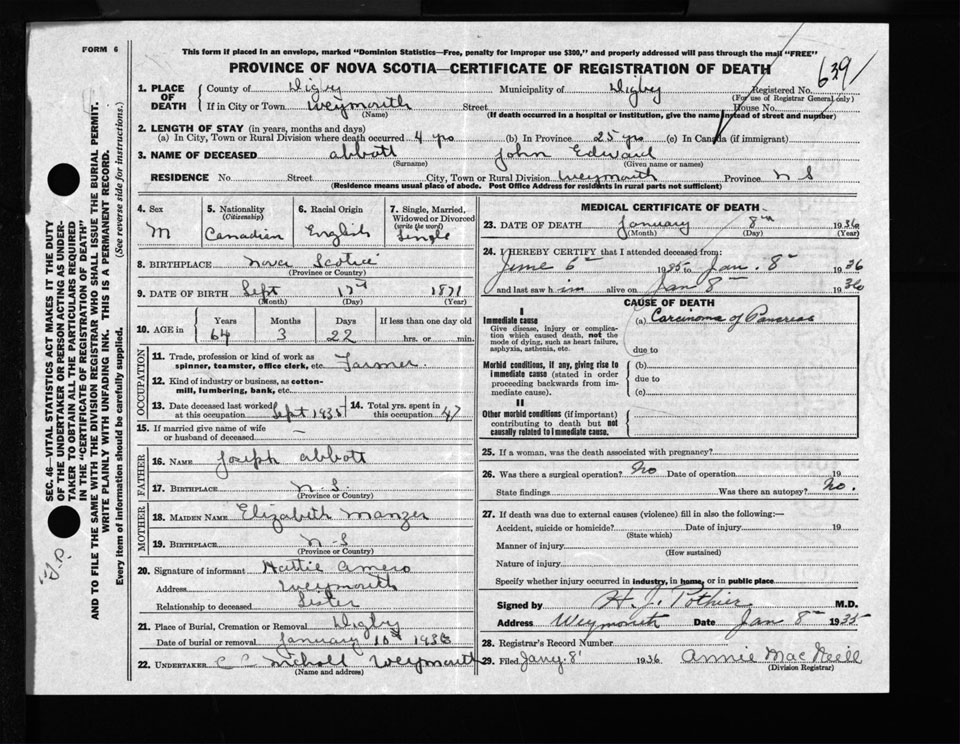 FORM 6
This form if placed in an envelope, marked "Dominion Statistics—Free, penalty for improper use $300," and properly addressed will pass through the mail "FREE"
PROVINCE OF NOVA SCOTIA—CERTIFICATE OF REGISTRATION OF DEATH
639
1. PLACE OF DEATH County of Digby Municipality of Digby Registered No.
(For use of Registrar General only)
If in City or Town Weymouth Street House No.
(Name) (If death occurred in a hospital or institution, give the name instead of street and number)
2. LENGTH OF STAY (in years, months and days)
(a) In City, Town or Rural Division where death occurred 4 yrs (b) In Province 25 yrs (c) In Canada (if immigrant)
3. NAME OF DECEASED Abbott John Edward
(Surname) (Given name or names)
RESIDENCE No. Street City, Town or Rural Division Weymouth Province N S
(Residence means usual place of abode. Post Office Address for residents in rural parts not sufficient)
4. Sex M
5. Nationality (Citizenship) Canadian
6. Racial Origin English
7. Single, Married, Widowed or Divorced (write the word) Single
8. BIRTHPLACE Nova Scotia
(Province or Country)
9. DATE OF BIRTH Sept 17th 1871
(Month) (Day) (Year)
10. AGE in Years Months Days If less than one day old
64 3 22 hrs. or min.
OCCUPATION
11. Trade, profession or kind of work as spinner, teamster, office clerk, etc. Farmer.
12. Kind of industry or business, as cotton-mill, lumbering, bank, etc.
13. Date deceased last worked at this occupation Sept 1935
14. Total yrs. spent in this occupation 47
15. If married give name of wife or husband of deceased —
FATHER
16. NAME Joseph Abbott
17. BIRTHPLACE N. S.
(Province or Country)
MOTHER
18. MAIDEN NAME Elizabeth Manzer
19. BIRTHPLACE N S
(Province or Country)
20. Signature of informant Hattie Amero
Address Weymouth
Relationship to deceased Sister
21. Place of Burial, Cremation or Removal Digby
Date of burial or removal January 10th 1936
22. UNDERTAKER Weymouth
(Name and address)
MEDICAL CERTIFICATE OF DEATH
23. DATE OF DEATH January 8th 1936
(Month) (Day) (Year)
24. I HEREBY CERTIFY that I attended deceased from:
June 6th 1935 to Jan. 8th 1936
and last saw him alive on Jan 8th 1936
CAUSE OF DEATH
I
Immediate cause (a) Carcinoma of Pancreas
Give disease, injury or complication which caused death, not the mode of dying, such as heart failure, asphyxia, asthenia, etc.
due to
Morbid conditions, if any, giving rise to immediate cause (stated in order proceeding backwards from immediate cause).
(b)
due to
(c)
II
Other morbid conditions (if important) contributing to death but not causally related to immediate cause.
25. If a woman, was the death associated with pregnancy?
26. Was there a surgical operation? No Date of operation 19
State findings Was there an autopsy? No.
27. If death was due to external causes (violence) fill in also the following:—
Accident, suicide or homicide? Date of injury 19
(State which)
Manner of injury
(How sustained)
Nature of injury
Specify whether injury occurred in industry, in home, or in public place
Signed by H. J. Pothier M.D.
Address Weymouth Date Jan 8th 1935
28. Registrar's Record Number
29. Filed Jany. 8' 1936 Annie MacNeill
(Division Registrar)
SEC. 46—VITAL STATISTICS ACT MAKES IT THE DUTY
OF THE UNDERTAKER OR PERSON ACTING AS UNDER-
TAKER TO OBTAIN ALL THE PARTICULARS REQUIRED
IN THE "CERTIFICATE OF REGISTRATION OF DEATH"
AND TO FILE THE SAME WITH THE DIVISION REGISTRAR WHO SHALL ISSUE THE BURIAL PERMIT.
WRITE PLAINLY WITH UNFADING INK. THIS IS A PERMANENT RECORD.
Every item of information should be carefully supplied. (See reverse side for instructions.)